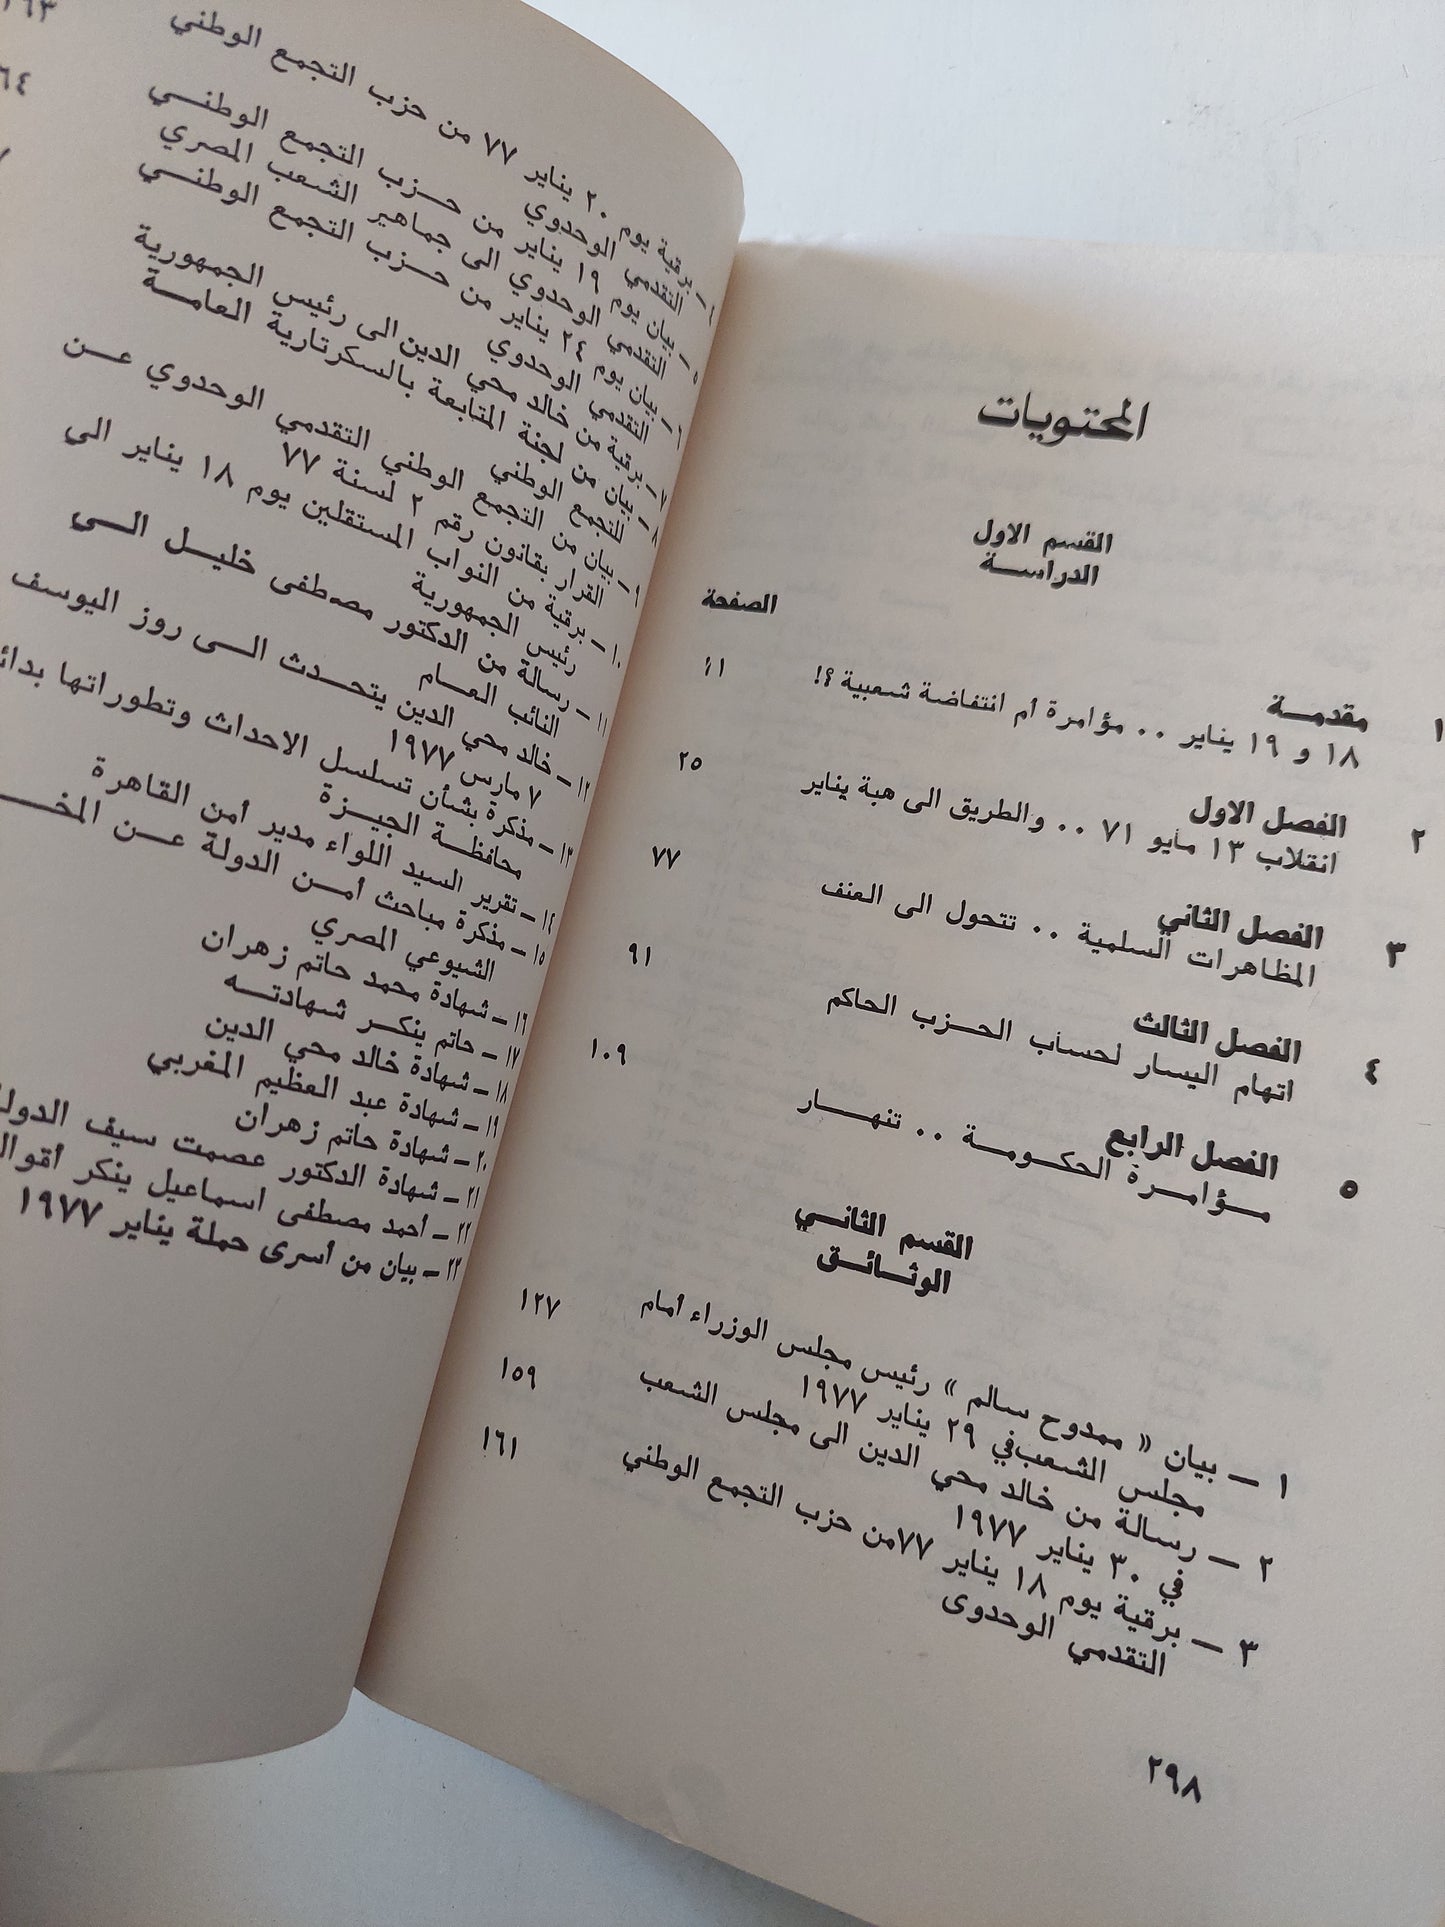 المحتويات
القسم الاول
الدراســة
الصفحة
١ مقدمــة
١٨ و ١٩ يناير .. مؤامرة أم انتفاضة شعبية ؟! ١١
٢ الفصل الاول
انقلاب ١٣ مايو ٧١ .. والطريق الى هبة يناير ٢٥
٣ الفصل الثاني
المظاهرات السلمية .. تتحول الى العنف ٧٧
٤ الفصل الثالث
اتهام اليسار لحساب الحــزب الحاكم ٩١
٥ الفصل الرابع
مــؤامــرة الحكــومــة .. تنهــار ١٠٩
القسم الثانــي
الوثــائــق
١ — بيان « ممدوح سالم » رئيس مجلس الوزراء أمام
مجلس الشعب في ٢٩ يناير ١٩٧٧ ١٢٧
٢ — رسالة من خالد محي الدين الى مجلس الشعب
في ٣٠ يناير ١٩٧٧ ١٥٩
٣ — برقية يوم ١٨ يناير ٧٧ من حزب التجمع الوطني
التقدمي الوحدوى ١٦١
٢٩٨
٤ — برقية يوم ٢٠ يناير ٧٧ من حزب التجمع الوطني
التقدمي الوحدوي ١٦٣
٥ — بيان يوم ١٩ يناير من حــزب التجمع الوطنــي
التقدمي الوحدوي الى جماهير الشعب المصري ٦٤
٦ — بيان يوم ٢٤ يناير من حــزب التجمع الوطنــي
التقدمي الوحدوي
٧ — برقية من خالد محي الدين الى رئيس الجمهورية
٨ — بيان من لجنة المتابعة بالسكرتارية العامــة
للتجمع الوطني
٩ — بيان من التجمع الوطني التقدمي الوحدوي عــن
القرار بقانون رقم ٢ لسنة ٧٧
١٠ — برقية من النواب المستقلين يوم ١٨ يناير الي
رئيس الجمهورية
١١ — رسالة من الدكتور مصطفى خليــل الــى
النائب العــام
١٢ — خالد محي الدين يتحــدث الــى روز اليوسف
٧ مارس ١٩٧٧
١٣ — مذكرة بشأن تسلسل الاحداث وتطوراتها
محافظــة الجيــزة
١٤ — تقرير السيد اللواء مدير أمن القاهرة
١٥ — مذكرة مباحث أمــن الدولة عــن
الشيوعي المصري
١٦ — شهادة محمد حاتم زهران
١٧ — حاتم ينكــر شهادتــه
١٨ — شهادة خالد محي الدين
١٩ — شهادة عبد العظيم المغربي
٢٠ — شهادة حاتم زهران
٢١ — شهادة الدكتور عصمت سيف الدولة
٢٢ — أحمد مصطفى اسماعيل ينكر
٢٣ — بيان من أسرى حملة يناير ١٩٧٧